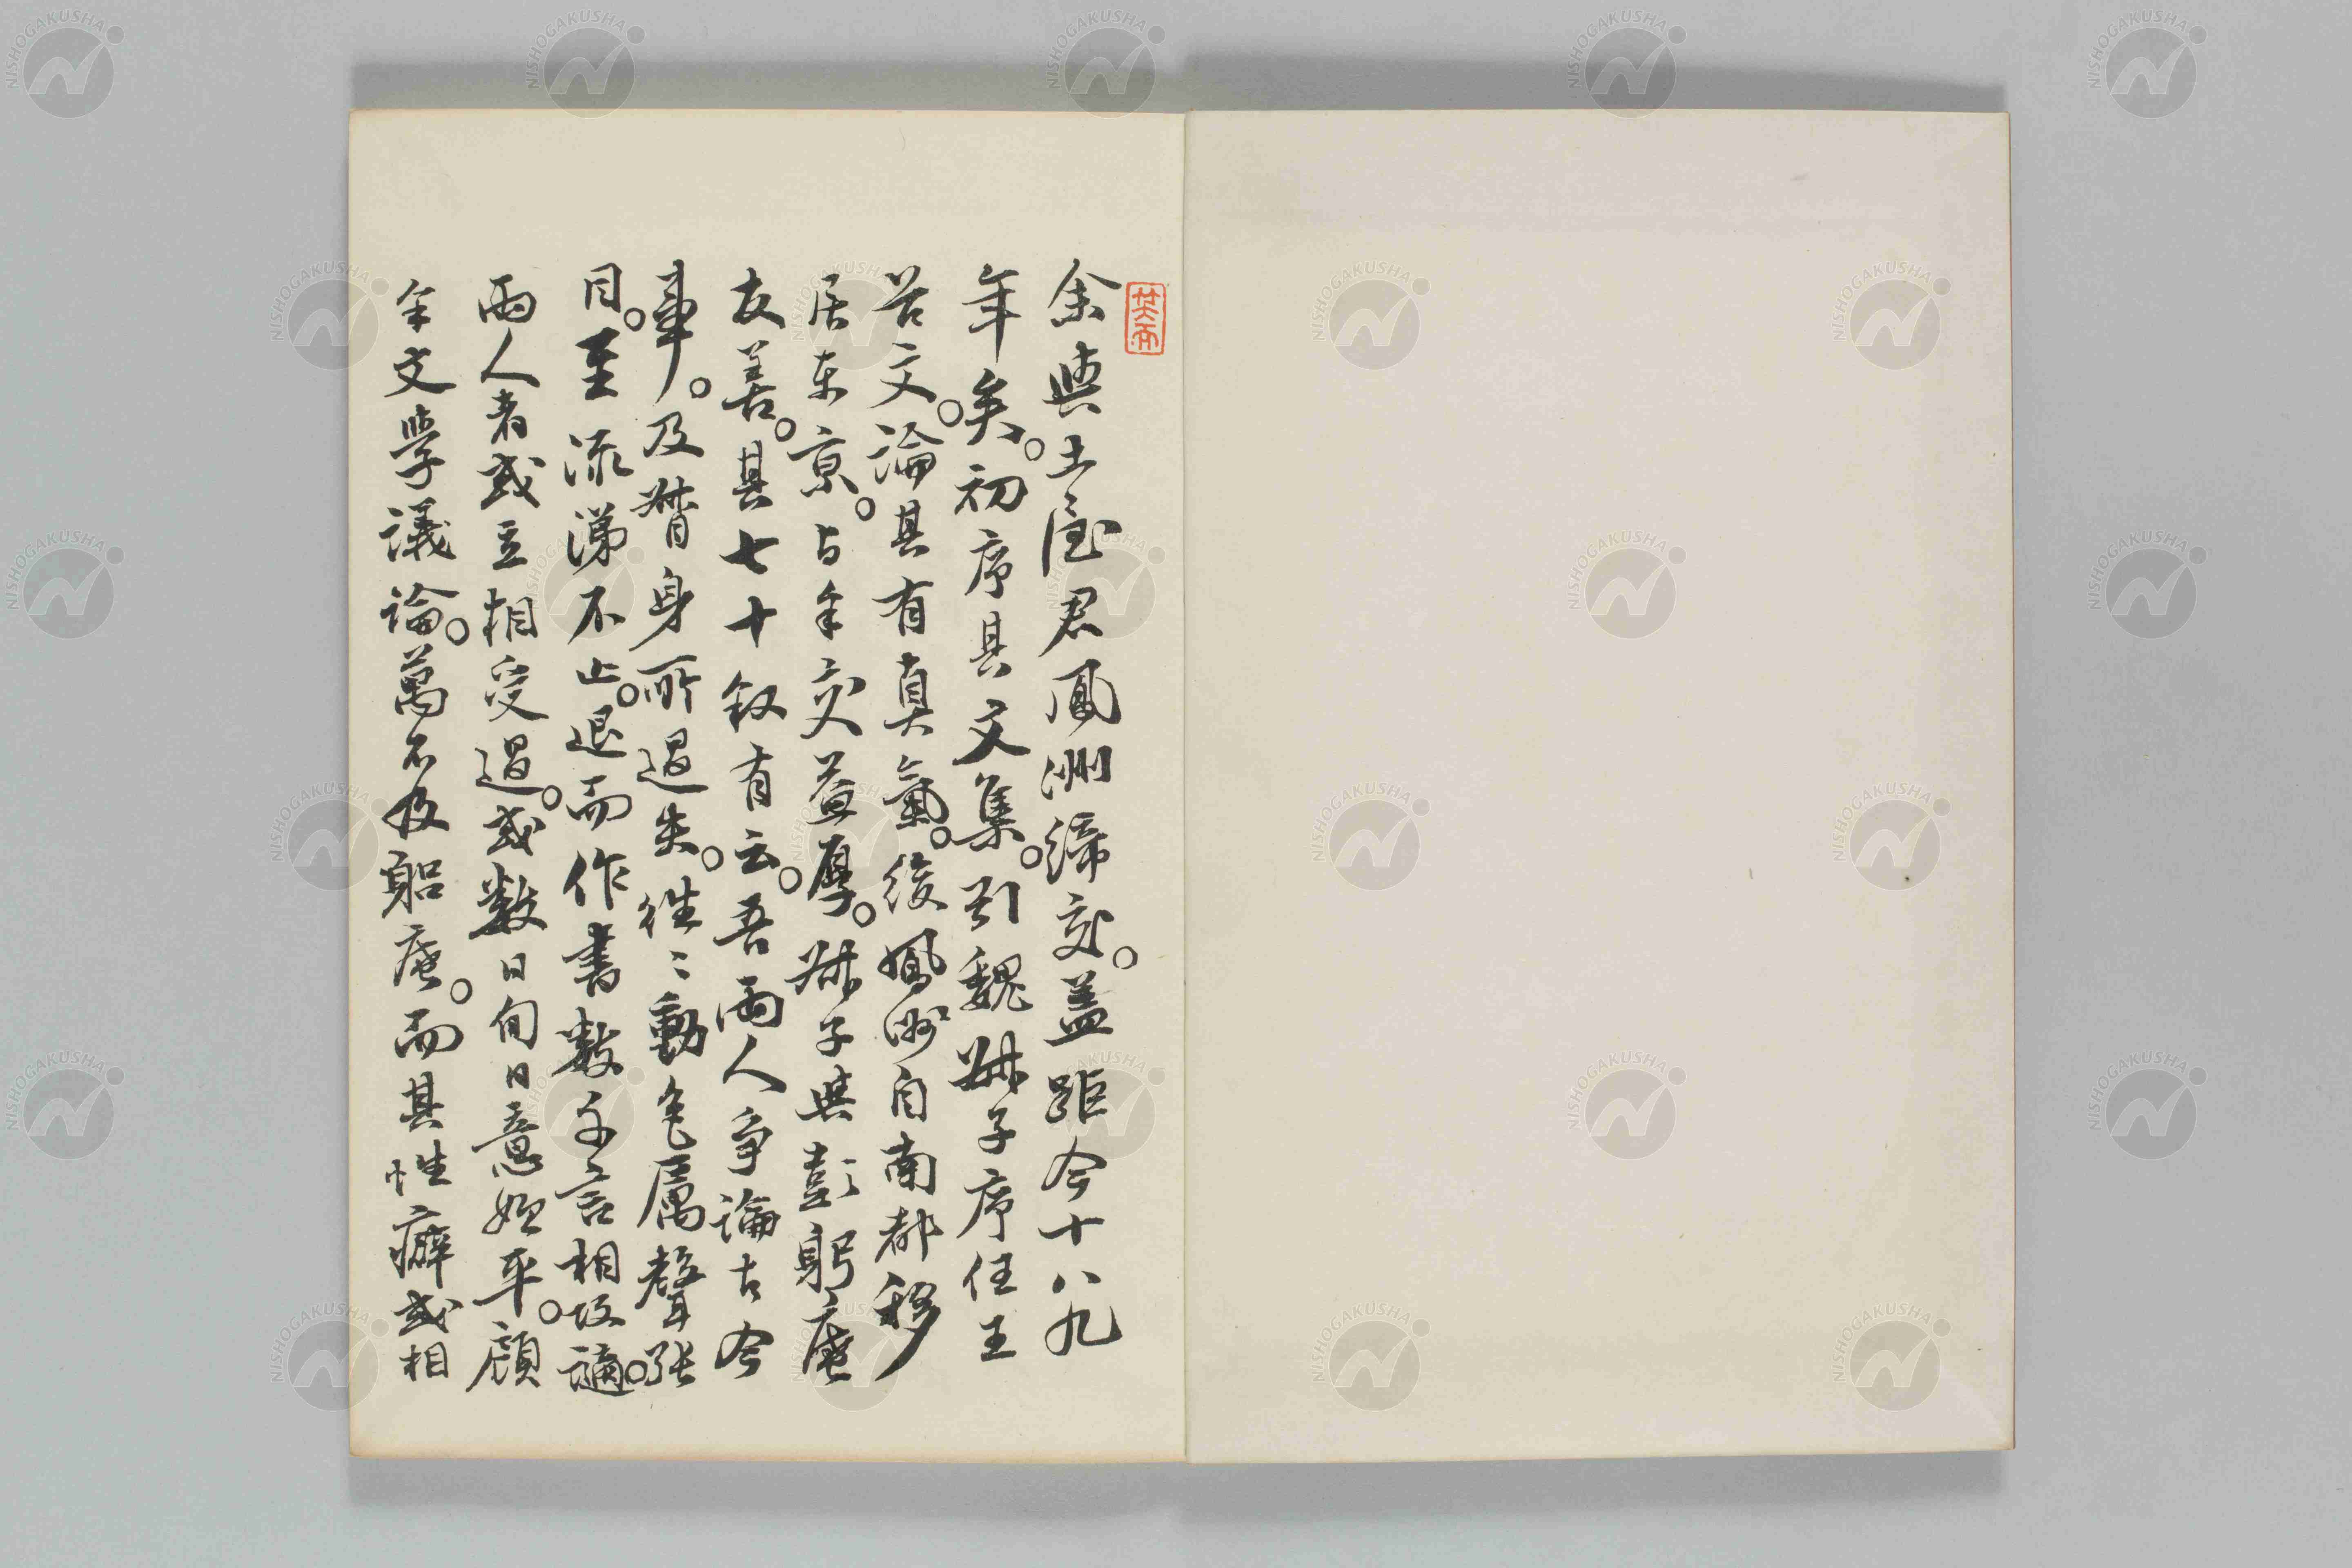 余與土屋君鳳洲締交。蓋距今十八九
年矣。初序其文集。引魏叔子序任王
谷文。論其有真氣。後鳳洲自南都移
居東京。与余交益厚。叔子與彭躬庵
友善。其七十叙有云。吾兩人爭論古今
事。及督身所過失。往〻動色厲聲張
目。至流涕不止。退而作書數千言相攻謫。
兩人者或立相受過。或數日旬日意始平。顧
余文學議論。萬不及躬庵。而其性癖或相
NISHOGAKUSHA